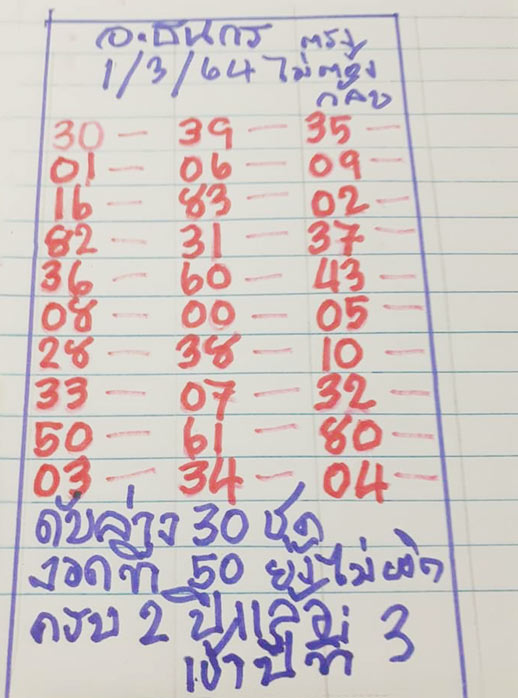 อ.ธนกร ตรงๆ
1/3/64 ไม่ต้อง
กลับ
30 — 39 — 35 —
01 — 06 — 09 —
16 — 83 — 02 —
82 — 31 — 37 —
36 — 60 — 43 —
08 — 00 — 05 —
28 — 38 — 10
33 — 07 — 32 —
50 — 61 — 80 —
03 — 34 — 04 —
ดับล่าง 30 ชุด
งวดที่ 50 ยังไม่ผิด
ครบ 2 ปีแล้ว
เข้าปีที่ 3